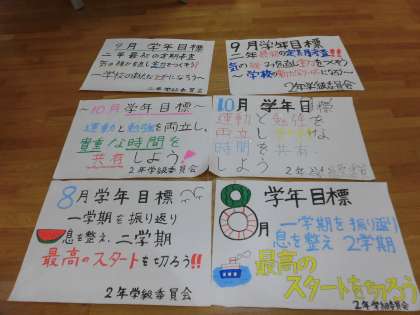 9月 学年目標
二年最初の定期考査
～学校の
２年学級委員会
9月学年目標
二年最初の定期考査!!
気の緩みを直し主力をつくろう
～学校の
２年学級委員会
～10月学年目標～
運動と勉強を両立し、
貴重な時間を
共有しよう！
２年学級委員会
10月 学年目標
運動と勉強を
両立し
時間を共有
しよう
２年学級委員会
8月学年目標
一学期を振り返り
息を整え、二学期
最高のスタートを切ろう!!
２年学級委員会
8月 学年目標
一学期を振り返り
息を整え 2学期
最高の
スタートを切ろう
２年学級委員会